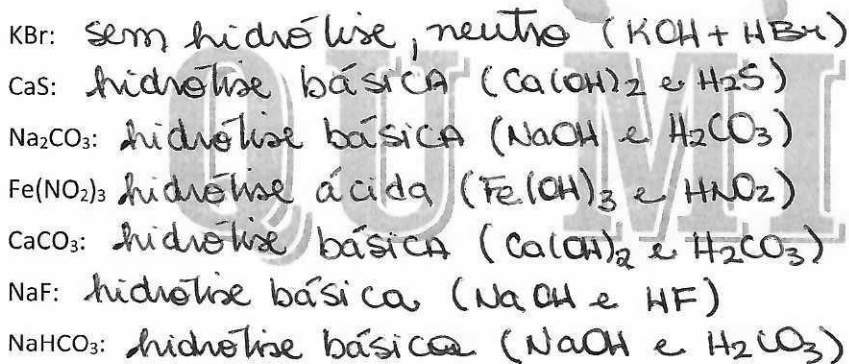 KBr: sem hidrólise, neutro (KOH + HBr)
CaS: hidrólise básica (Ca(OH)2 e H2S)
Na₂CO₃: hidrólise básica (NaOH e H2CO3)
Fe(NO₂)₃ hidrólise ácida (Fe(OH)3 e HNO2)
CaCO₃: hidrólise básica (Ca(OH)2 e H2CO3)
NaF: hidrólise básica (NaOH e HF)
NaHCO₃: hidrólise básica (NaOH e H2CO3)
QUMI